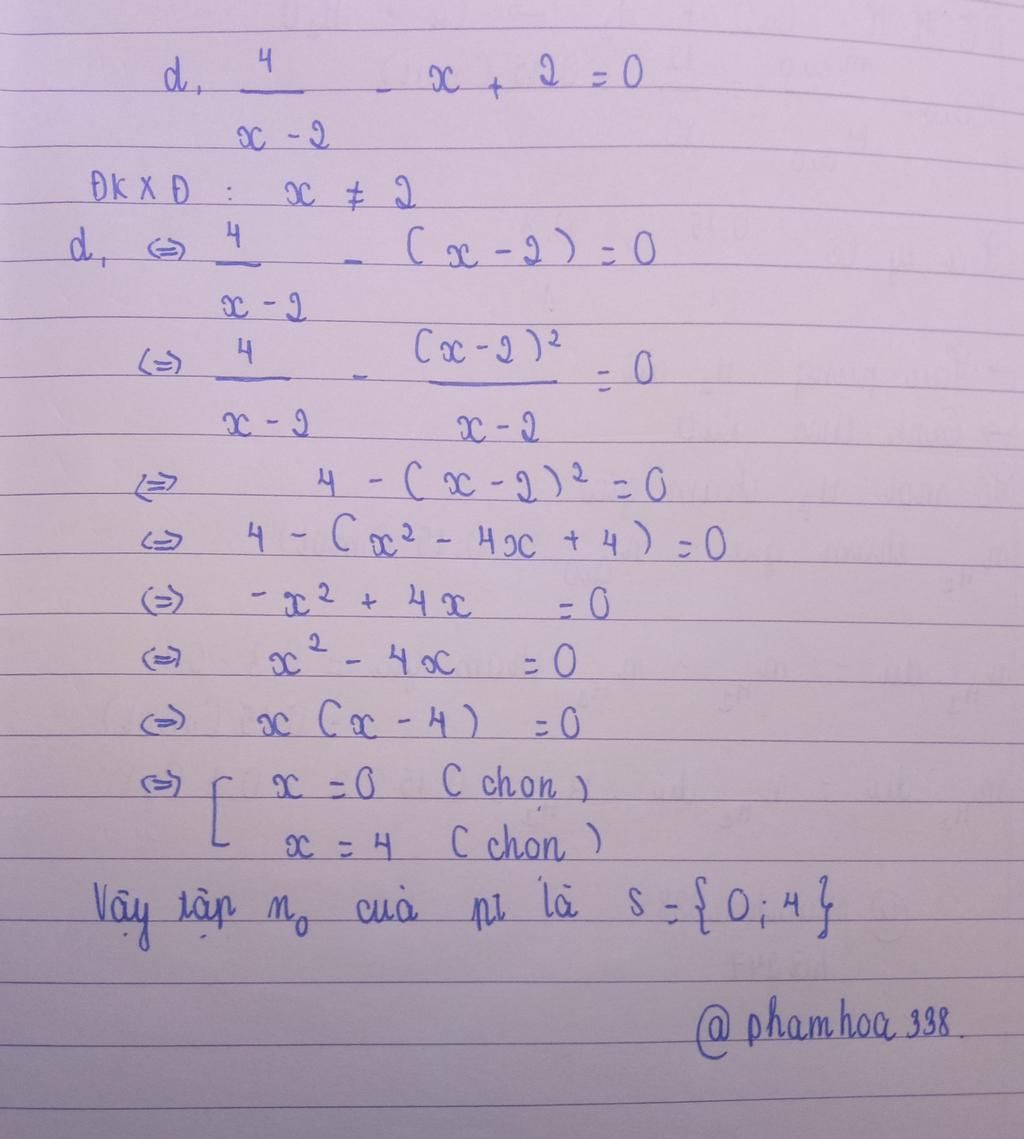 d, 4/(x - 2) - x + 2 = 0
ĐKXĐ : x ≠ 2
d, ⇔ 4/(x - 2) - (x - 2) = 0
⇔ 4/(x - 2) - (x - 2)²/(x - 2) = 0
⇔ 4 - (x - 2)² = 0
⇔ 4 - (x² - 4x + 4) = 0
⇔ -x² + 4x = 0
⇔ x² - 4x = 0
⇔ x (x - 4) = 0
⇔ [ x = 0 (chọn)
x = 4 (chọn)
Vậy tập n₀ của pt là S = {0; 4}
@phamhoa338.